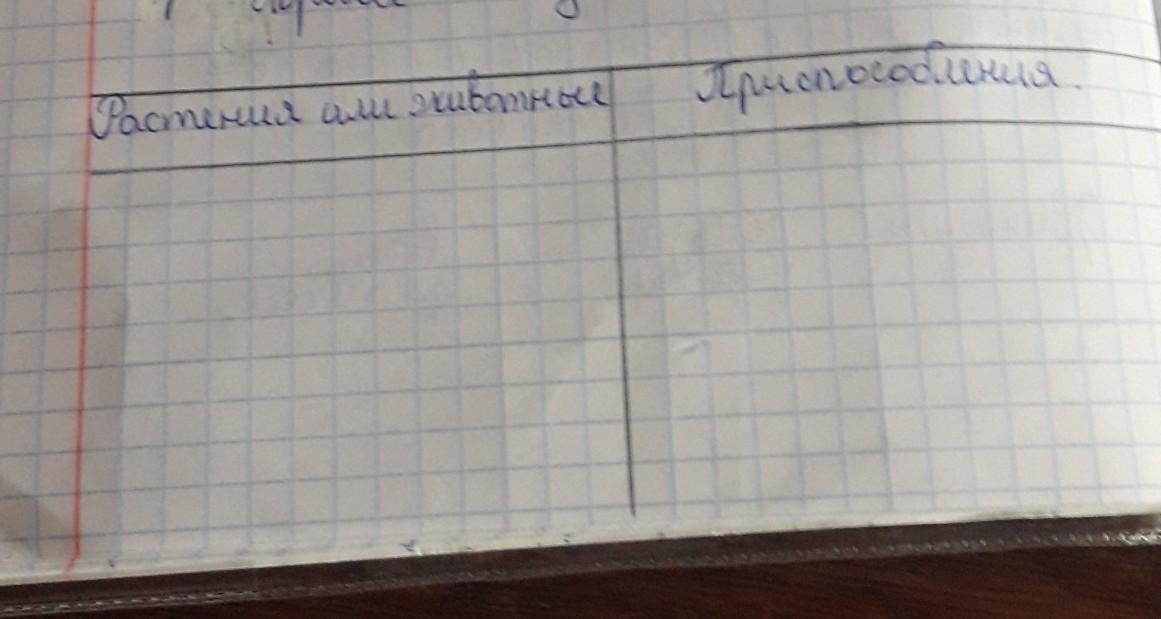 Растения или животные Приспособления.